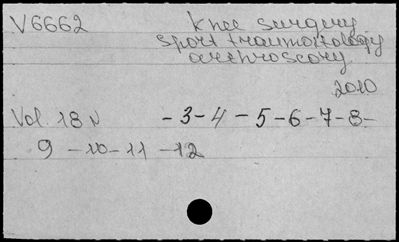 V6662 Knee surgery
sport traumatology
arthroscopy
2010
Vol. 18 N -3-4-5-6-7-8-
9-10-11-12